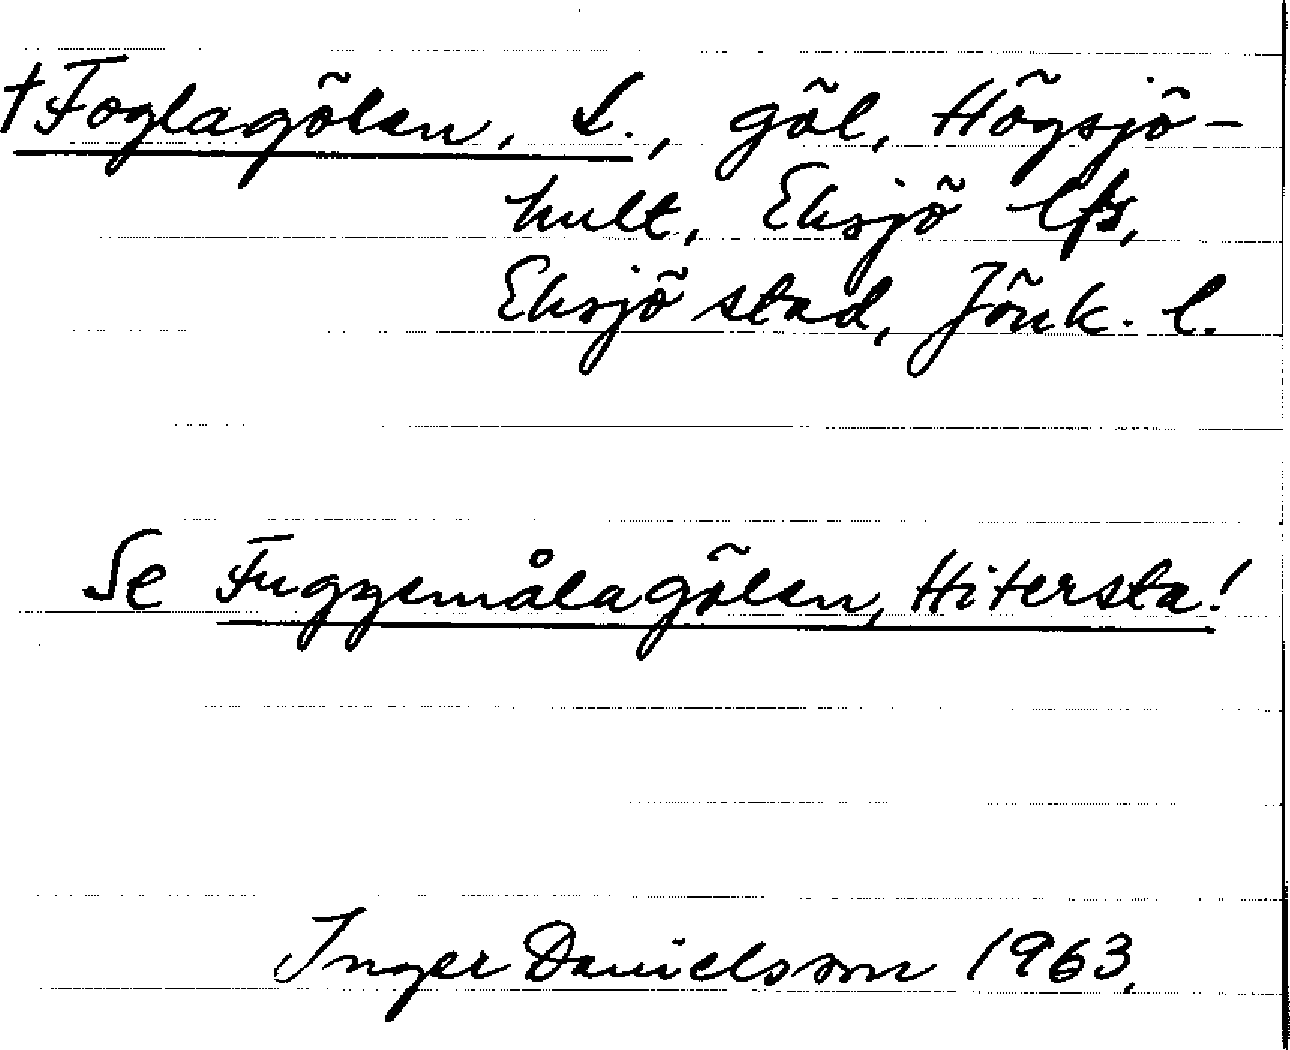 †Foglagölen, L., göl, Högsjö-
hult, Eksjö lfs,
Eksjö stad, Jönk. l.
Se Fuggemålagölen, Hitersta!
Inger Danielsson 1963.